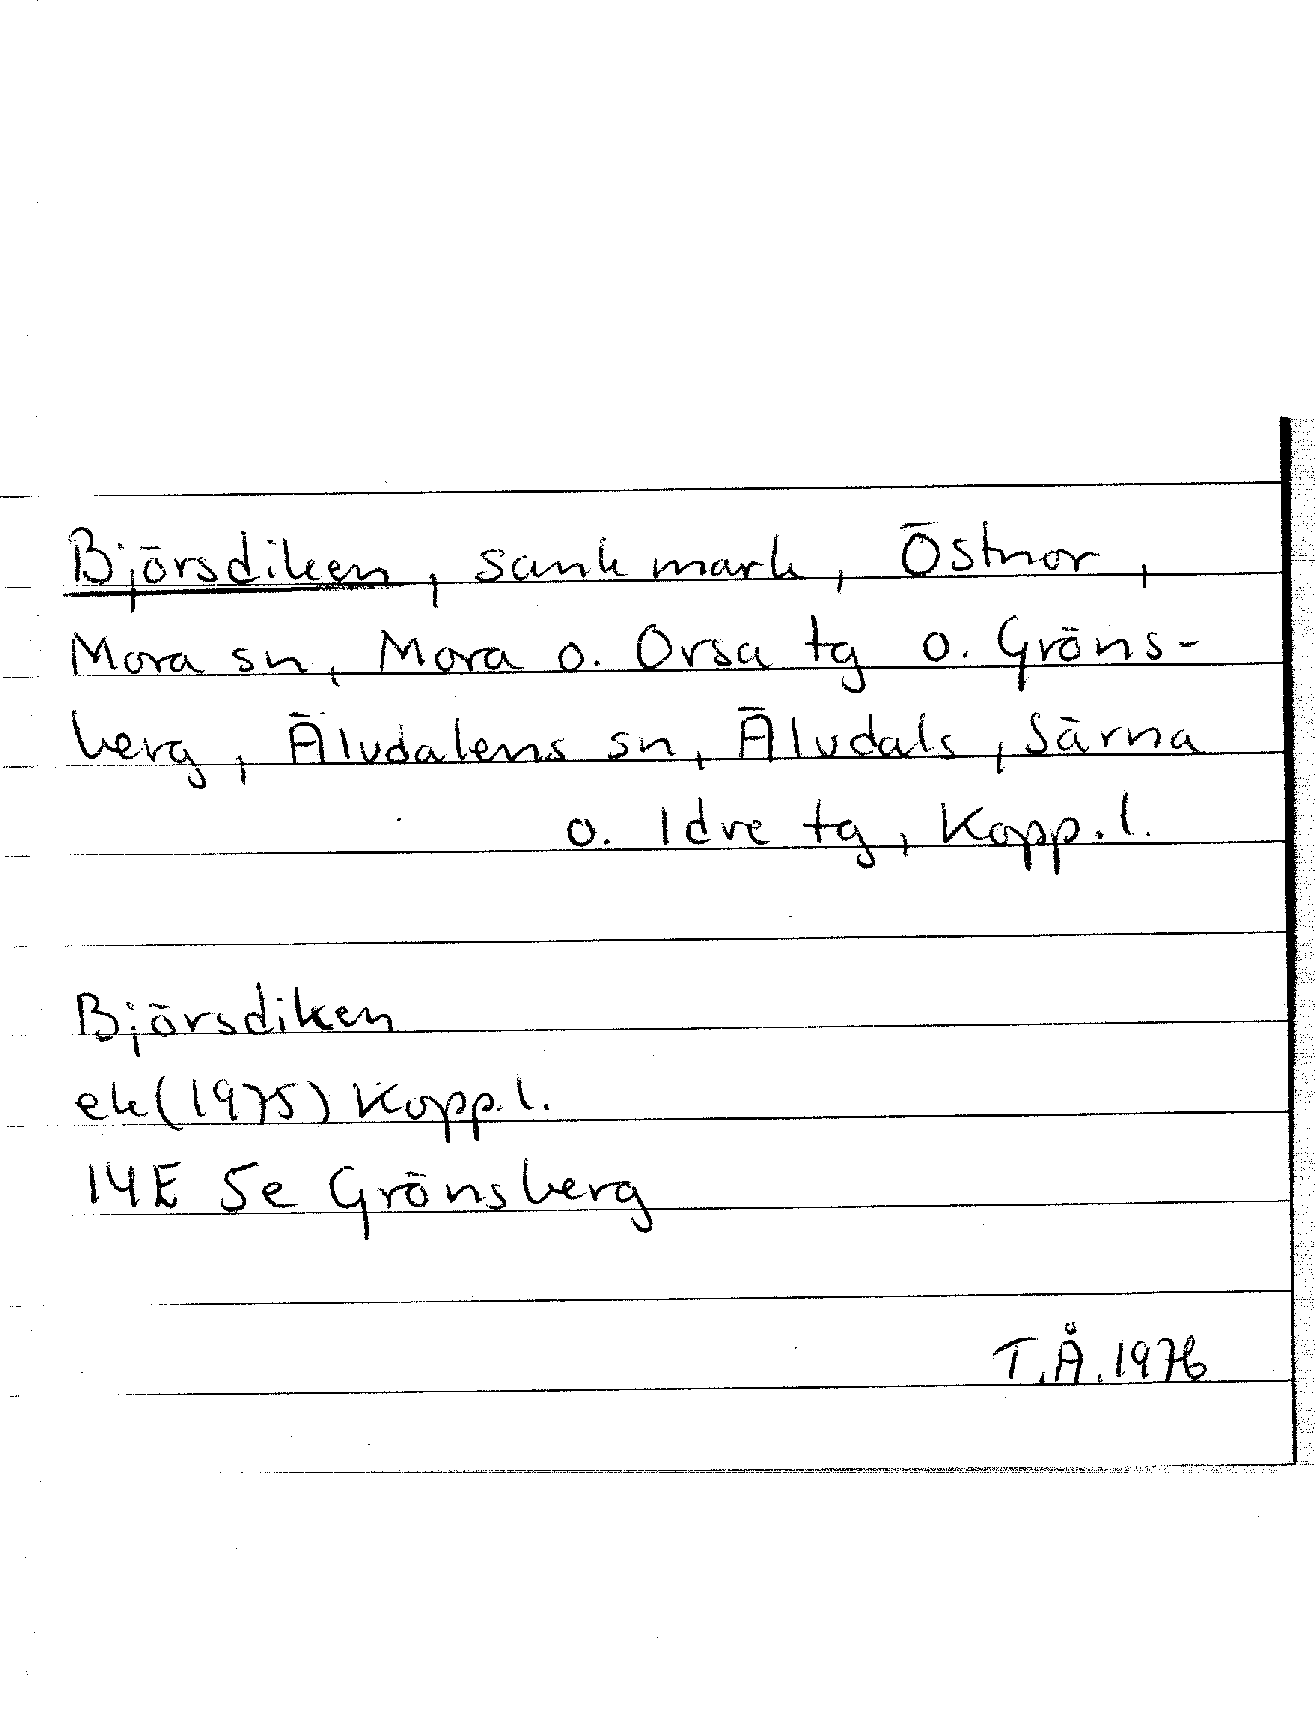 Björsdiken, sank mark, Östnor,
Mora sn, Mora o. Orsa tg o. Gröns-
berg, Älvdalens sn, Älvdals, Särna
o. Idre tg, Kopp.l.
Björsdiken
ek(1975) Kopp.l.
14E 5e Grönsberg
T.Å.1976